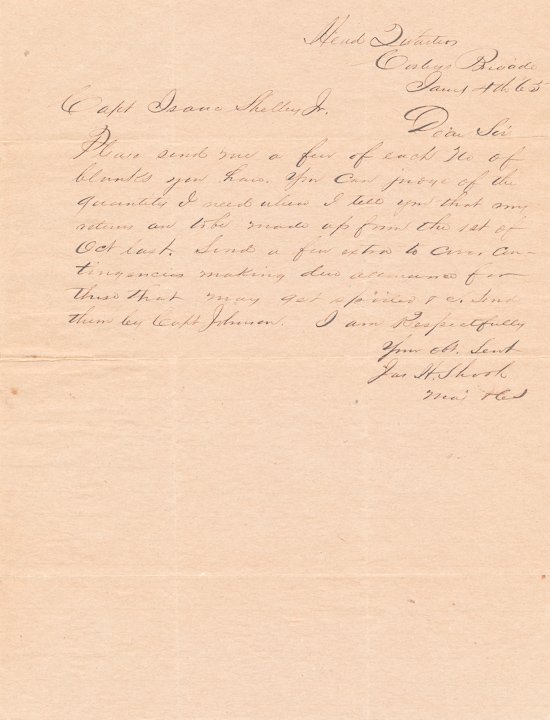 Head Quarters
Cosbys Brigade
Jany 4th 65
Capt Isaac Shelby Jr.
Dear Sir
Please send me a few of each No of
blanks you have. You can judge of the
quantity I need when I tell you that my
returns are to be made up from the 1st of
Oct last. Send a few extra to cover con-
tingencies making due allowance for
those that may get spoiled &c. Send
them by Capt Johnson. I am Respectfully
Your obt. Servt
Jas H. Shook
Maj &